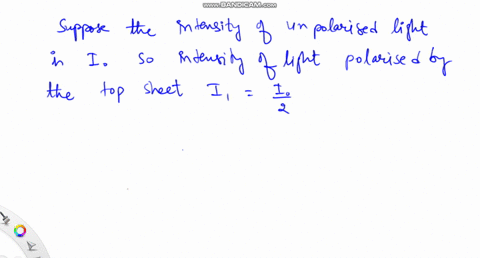 www.BANDICAM.com
Suppose the intensity of unpolarised light
is I₀ so intensity of light polarised by
the top sheet I₁ = I₀/2